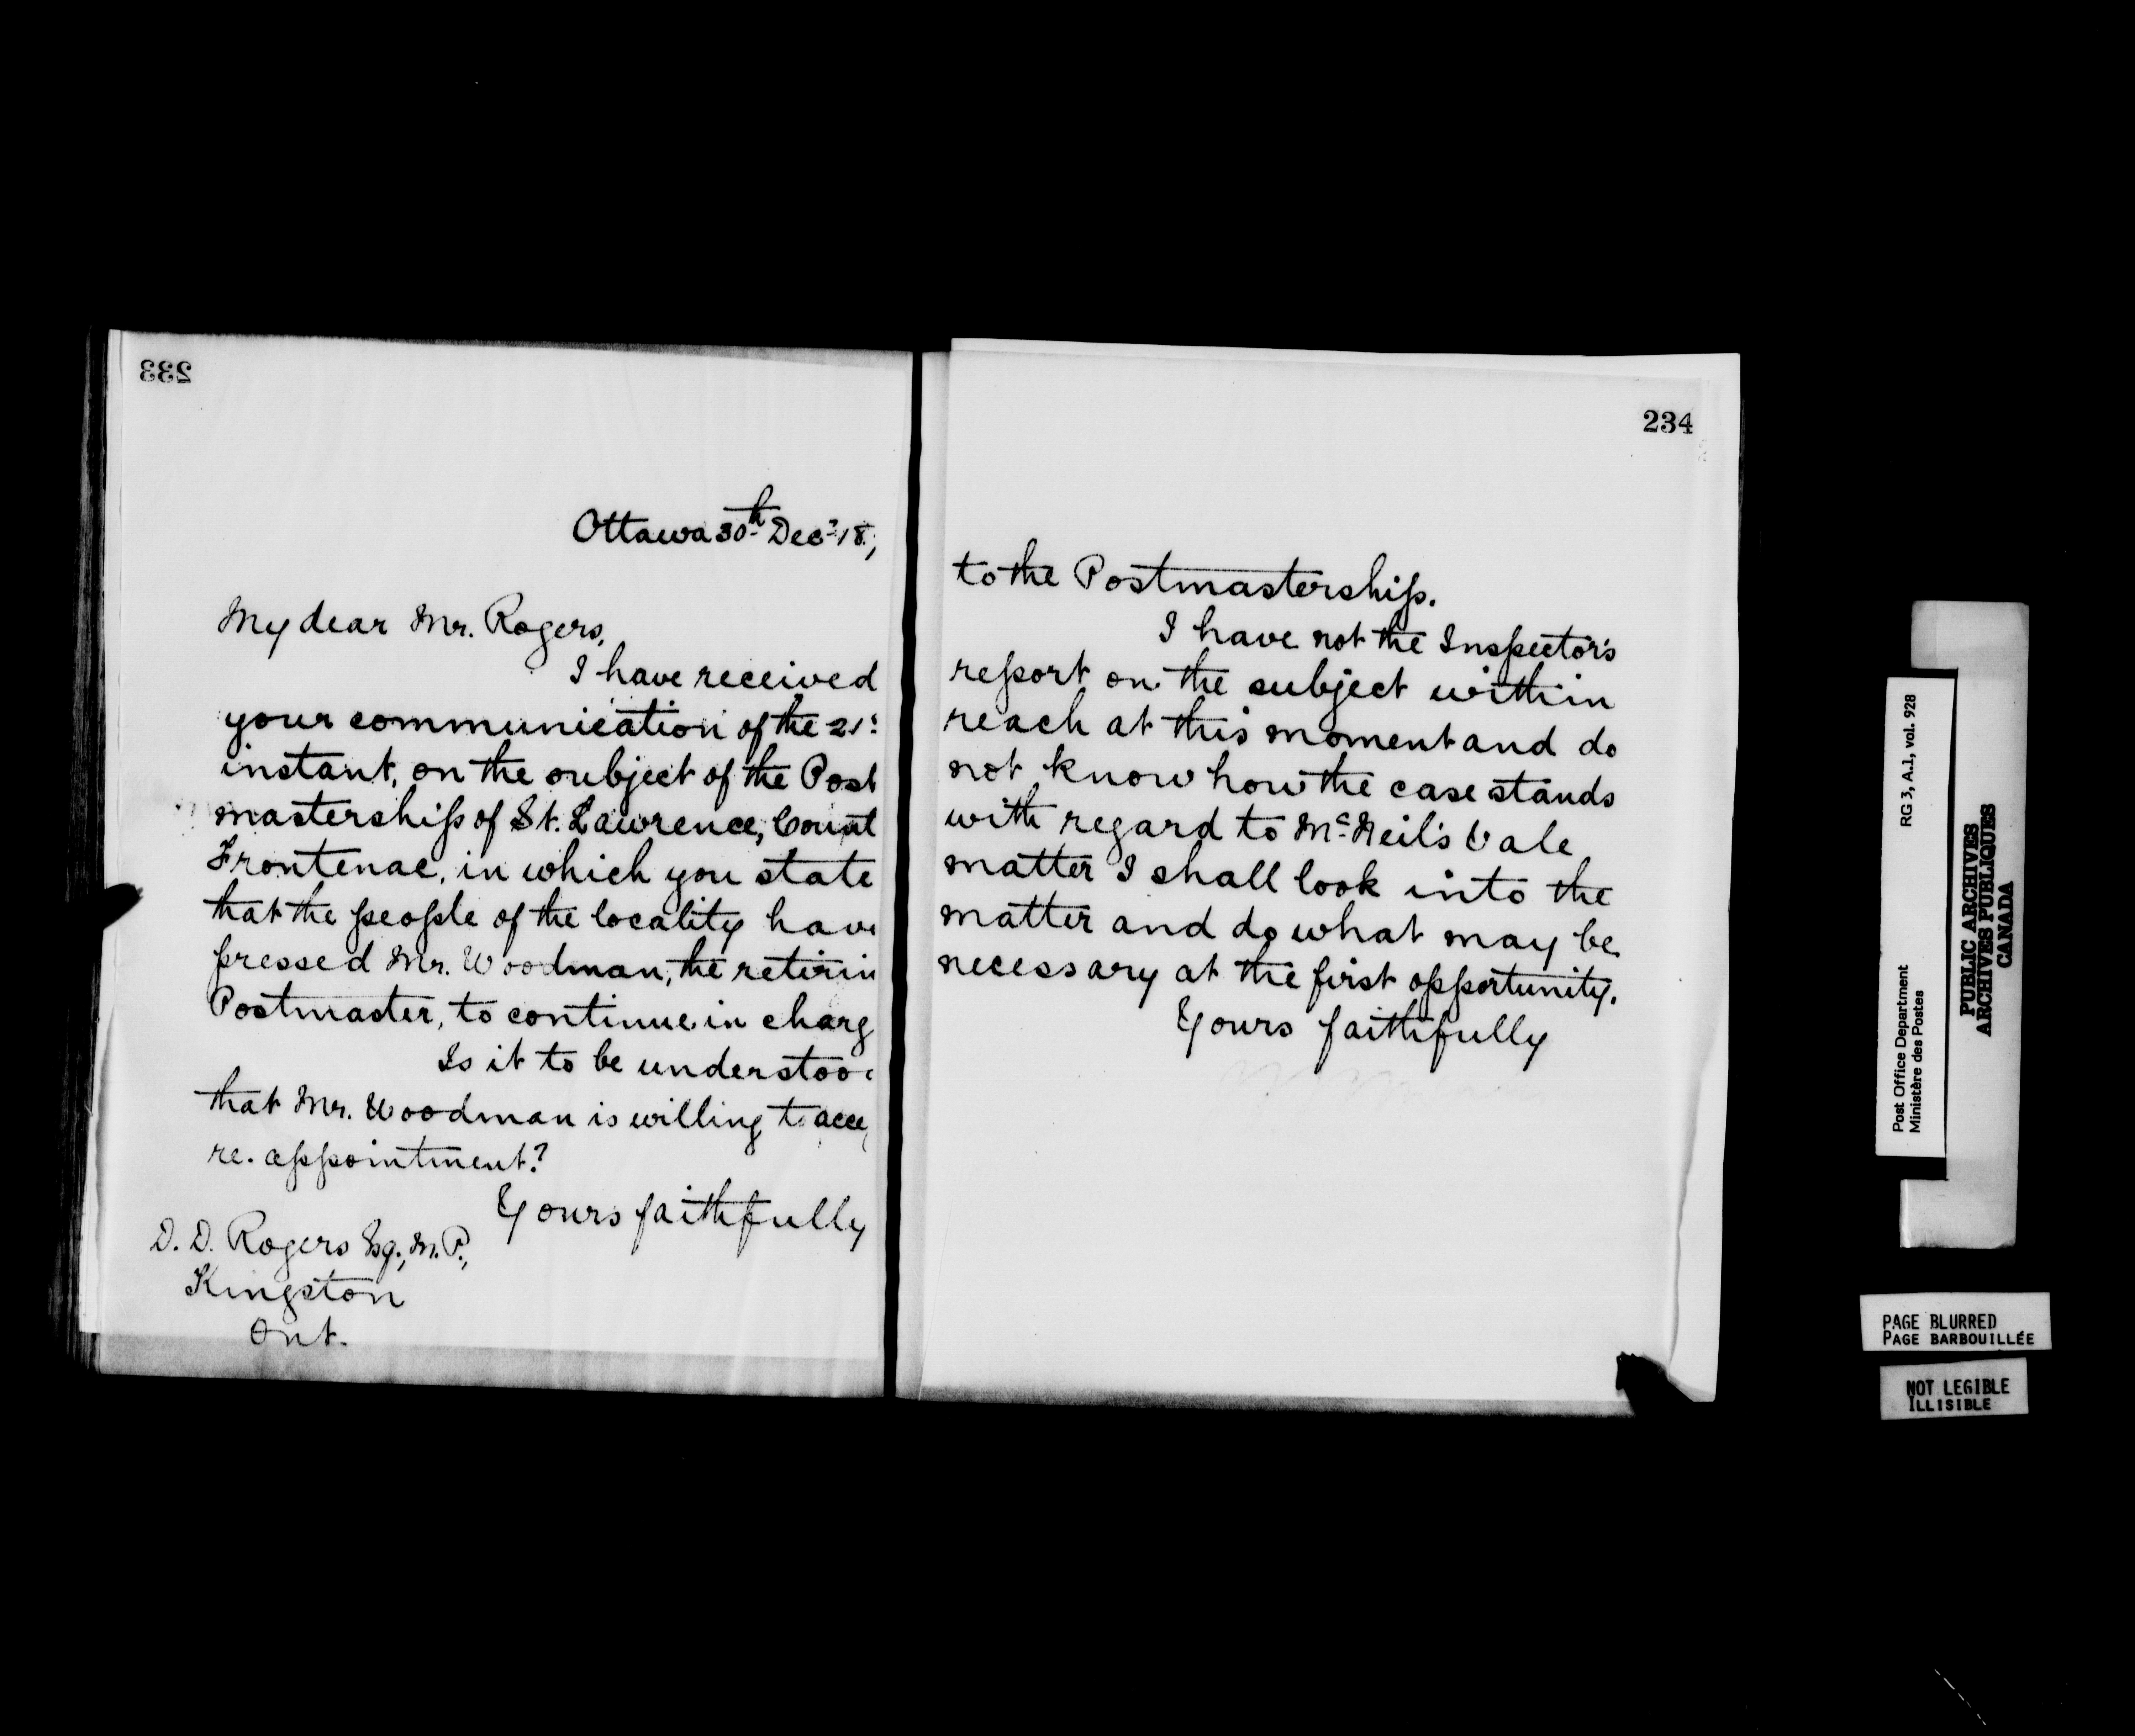 233
Ottawa 30th Decr 18,
My dear Mr. Rogers,
I have received
your communication of the 21st
instant, on the subject of the Post
mastership of St. Lawrence, Count
Frontenac, in which you state
that the people of the locality hav
pressed Mr. Woodman, the retirin
Postmaster, to continue in charg
Is it to be understoo
that Mr. Woodman is willing to acce
re. appointment?
Yours faithfully
D. D. Rogers Esq., M.P.,
Kingston
Ont.
234
to the Postmastership.
I have not the Inspector's
report on the subject within
reach at this moment and do
not know how the case stands
with regard to McNeil's Vale
matter I shall look into the
matter and do what may be
necessary at the first opportunity.
Yours faithfully
RG 3, A.1, vol. 928
Post Office Department
Ministère des Postes
PUBLIC ARCHIVES
ARCHIVES PUBLIQUES
CANADA
PAGE BLURRED
PAGE BARBOUILLÉE
NOT LEGIBLE
ILLISIBLE